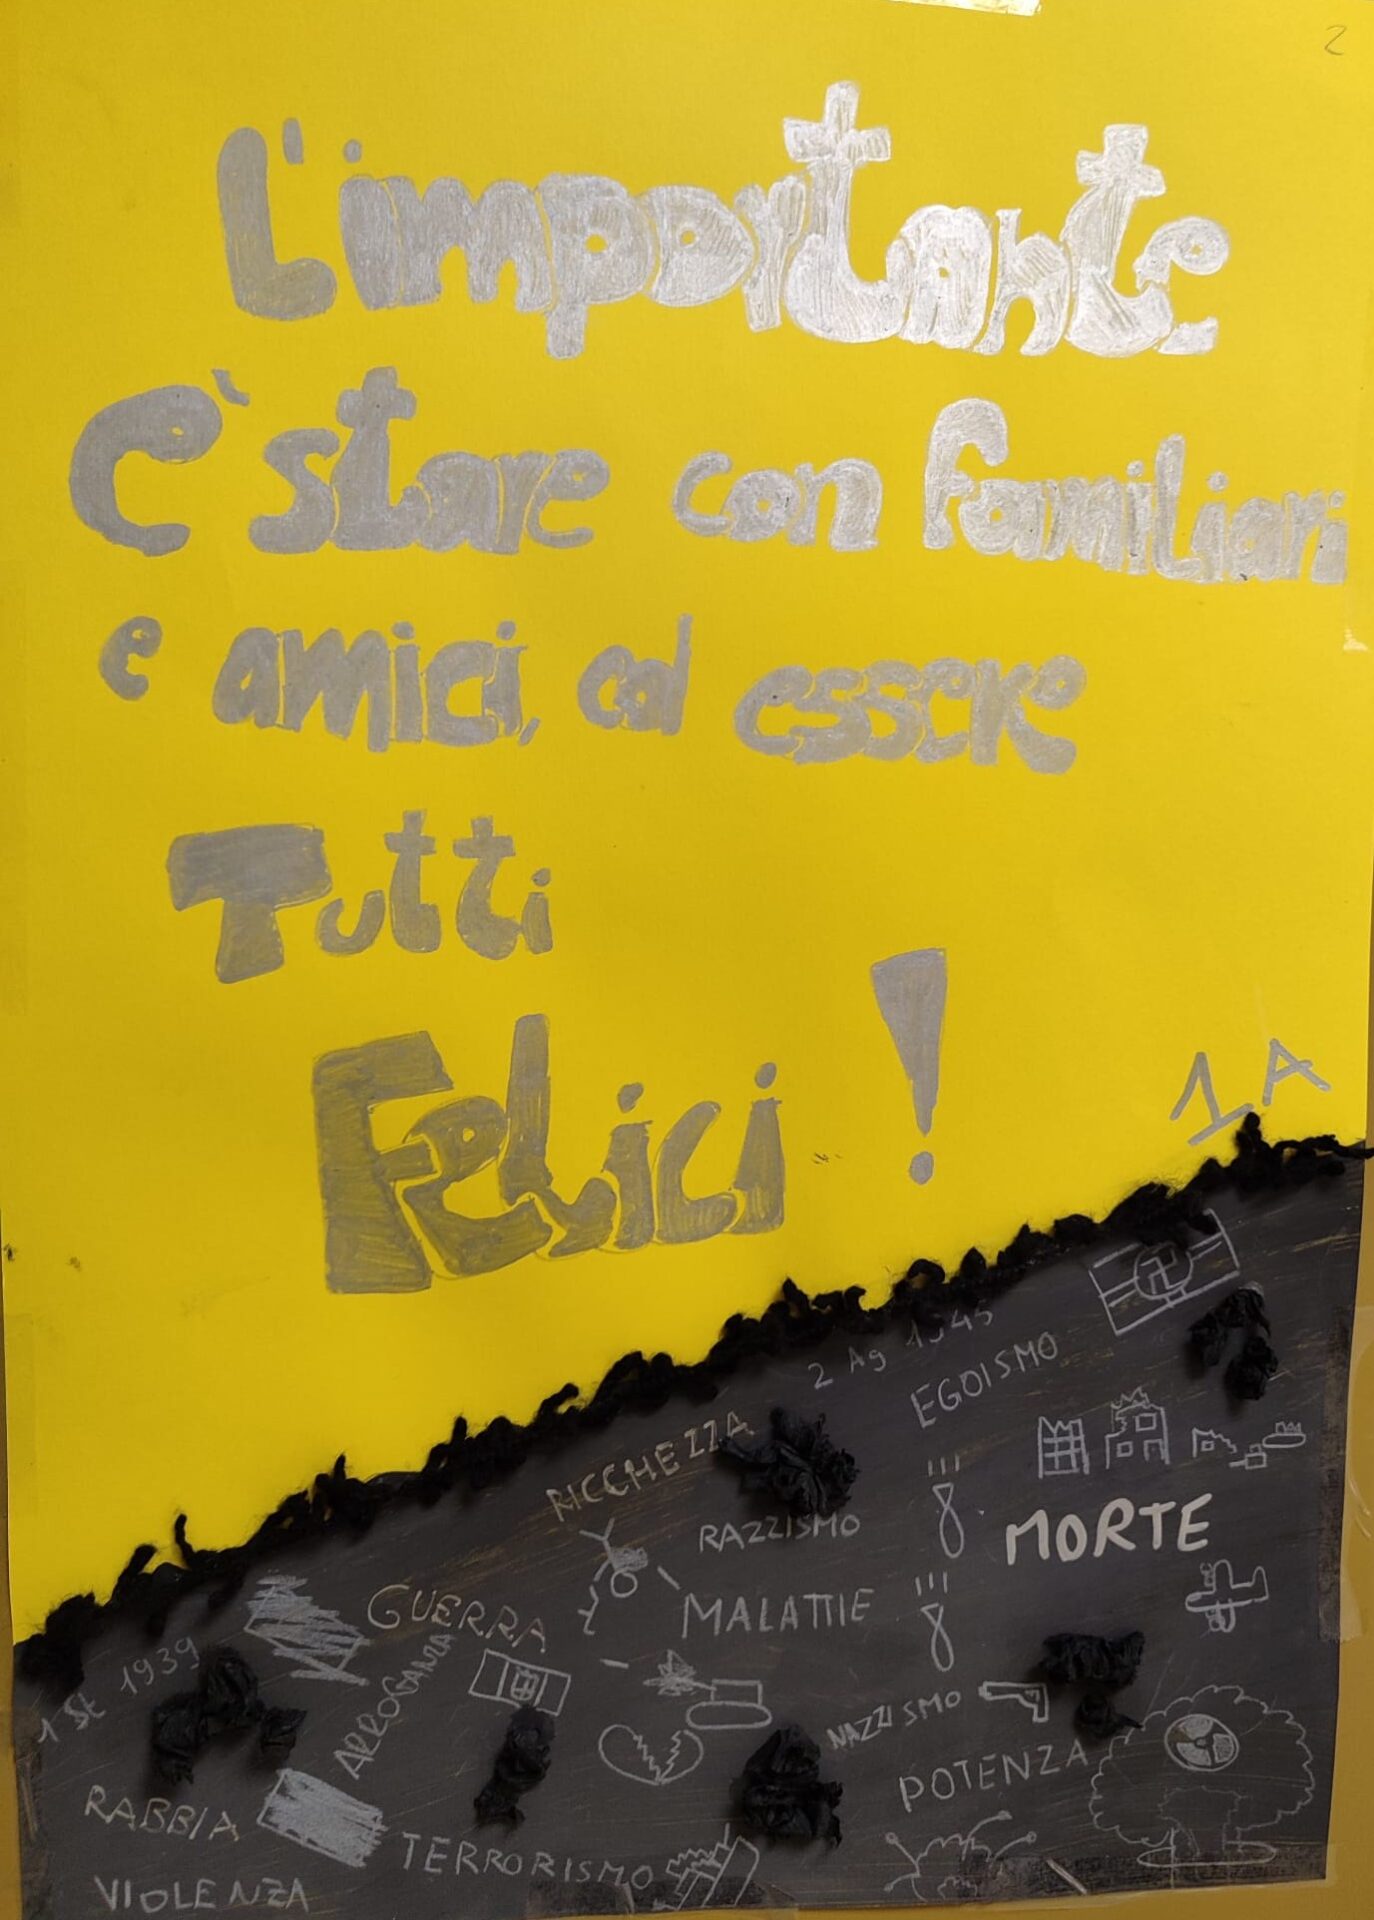 2
L'importante
è stare con familiari
e amici, ed essere
Tutti
Felici !
1A
2 Ag 1945
EGOISMO
RICCHEZZA
RAZZISMO
MORTE
GUERRA
MALATTIE
1 St 1939
ARROGANZA
NAZZISMO
POTENZA
RABBIA
TERRORISMO
VIOLENZA